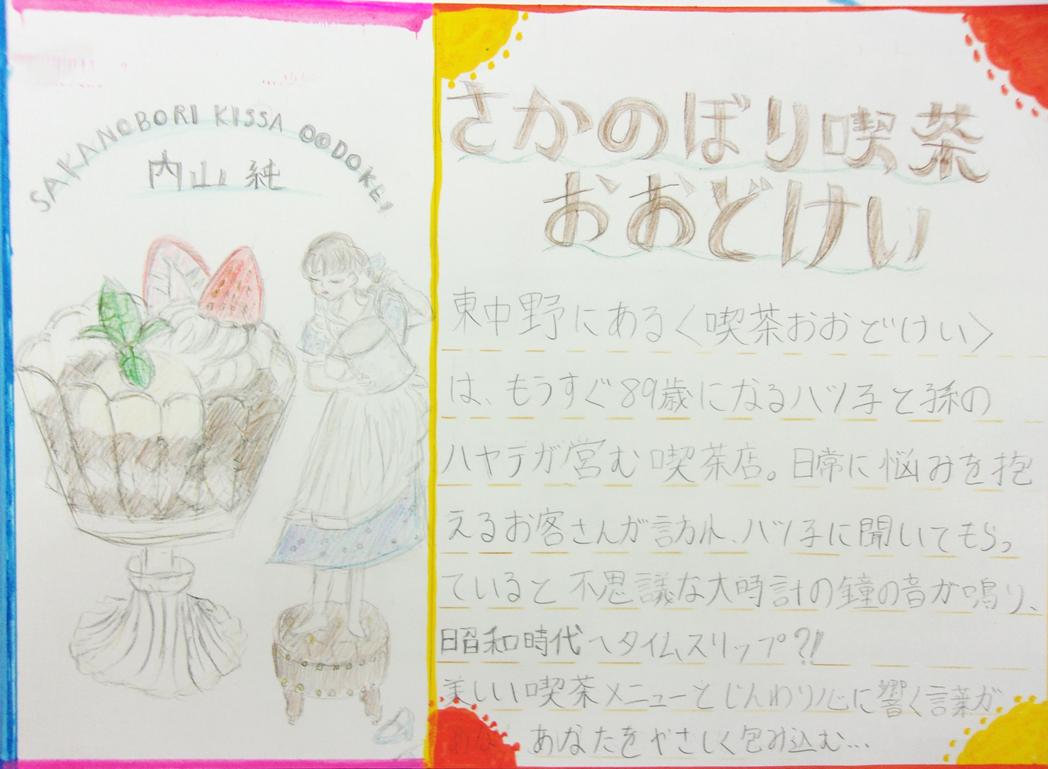 SAKANOBORI KISSA OODOKEI
内山 純
さかのぼり喫茶
おおどけい
東中野にある〈喫茶おおどけい〉
は、もうすぐ89歳になるハツ子と孫の
ハヤテが営む喫茶店。日常に悩みを抱
えるお客さんが訪れ、ハツ子に聞いてもらっ
ていると不思議な大時計の鐘の音が鳴り、
昭和時代へタイムスリップ?!
美しい喫茶メニューとじんわり心に響く言葉が
あなたをやさしく包み込む…